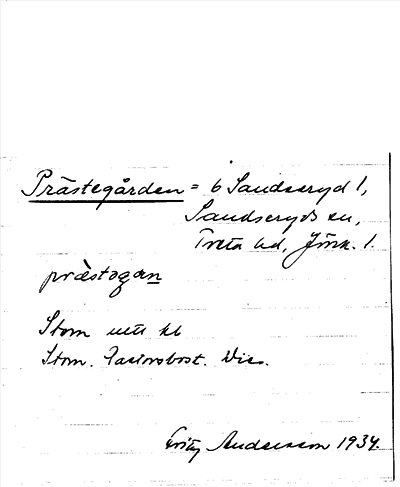 Prästegården = b Sandseryd 1,
Sandseryds sn,
Tveta hd, Jönk. l.
præstagan
Stom utu kb
Stom. Pastorsbost. Vis.
Fritz Andersson 1934